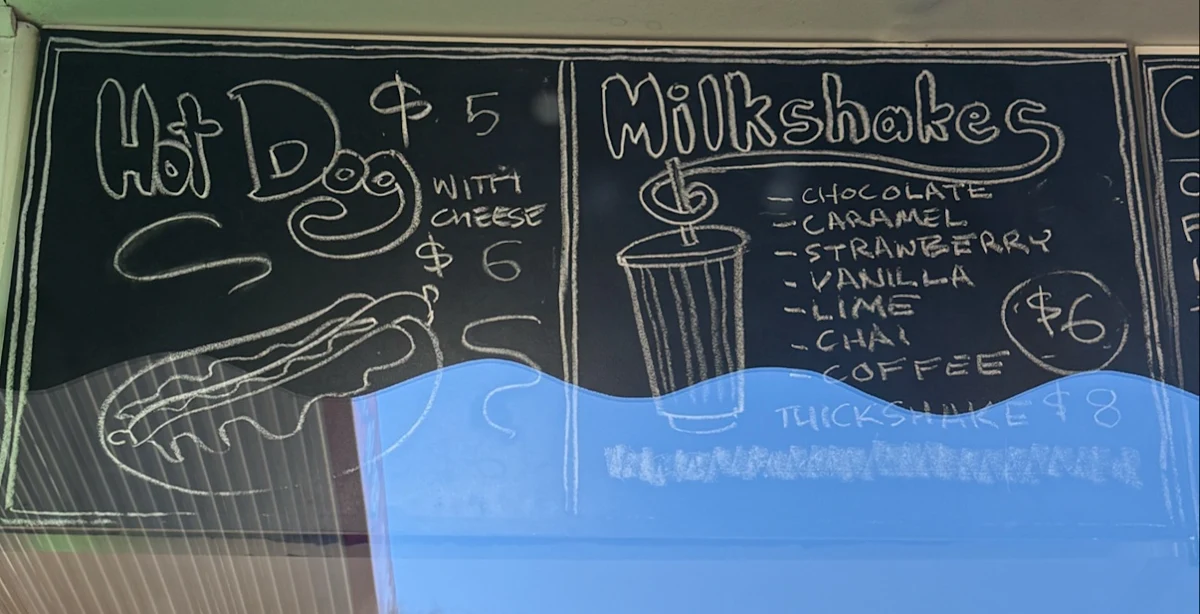 Hot Dog $ 5
WITH
CHEESE
$ 6
Milkshakes
- CHOCOLATE
- CARAMEL
- STRAWBERRY
- VANILLA
- LIME
- CHAI
- COFFEE
$6
THICKSHAKE $8